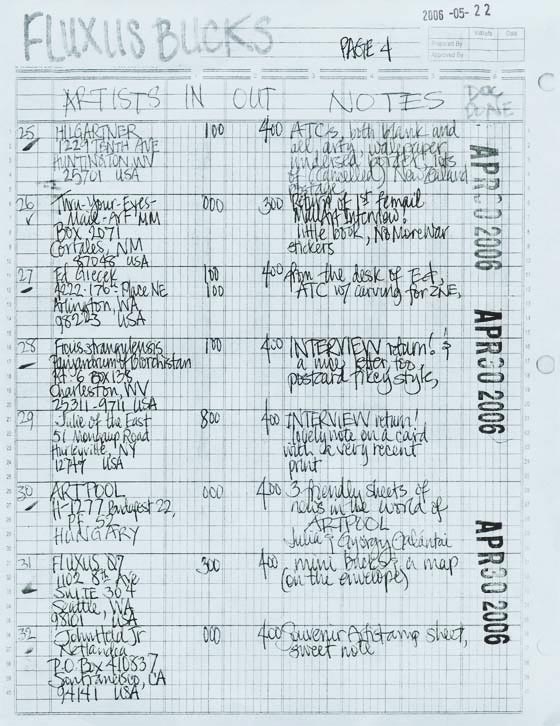 2006-05-22
FLUXUS BUCKS
PAGE 4
Initials Date
Prepared By
Approved By
ARTISTS IN OUT NOTES DOC DONE
25 HILGARTNER 100 400 ATCs, both blank and
1229 TENTH AVE all arty, wallpaper,
HUNTINGTON, WV border, lots
25701 USA of (cancelled) New Zealand
postage
APR 30 2006
26 Thru-Your-Eyes- 000 300 Return of 1st femail
Made-Art-MM MailArt Interview!
Box 2071 little book, No More War
Corrales, NM stickers
87048 USA
27 Ed Giecek 100 400 from the desk of Ed,
4222-176th Place NE 100 ATC w/ carving for ZNE,
Arlington, WA
98223 USA
APR 30 2006
28 100 400 INTERVIEW return! &
a nice letter, too
Rt. 6 Box 138 postcard
Charleston, WV
25311-9711 USA
29 Julie of the East 800 400 INTERVIEW return!
51 Mongaup Road lovely note on a card
Hurleyville, NY with a very recent
12747 USA print
30 ARTPOOL 000 400 3 friendly sheets of
H-1277 Budapest 22, news in the world of
PF. 52 ARTPOOL
HUNGARY Julia & Gyorgy Galántai
APR 30 2006
31 FLUXUS 300 400 mini Bucks & a map
1102 8th Ave (on the envelope)
SUITE 304
Seattle, WA
98101 USA
32 John Held Jr 000 400 Souvenir Artistamp sheet,
sweet note
P.O. Box 410837
San Francisco, CA
94141 USA